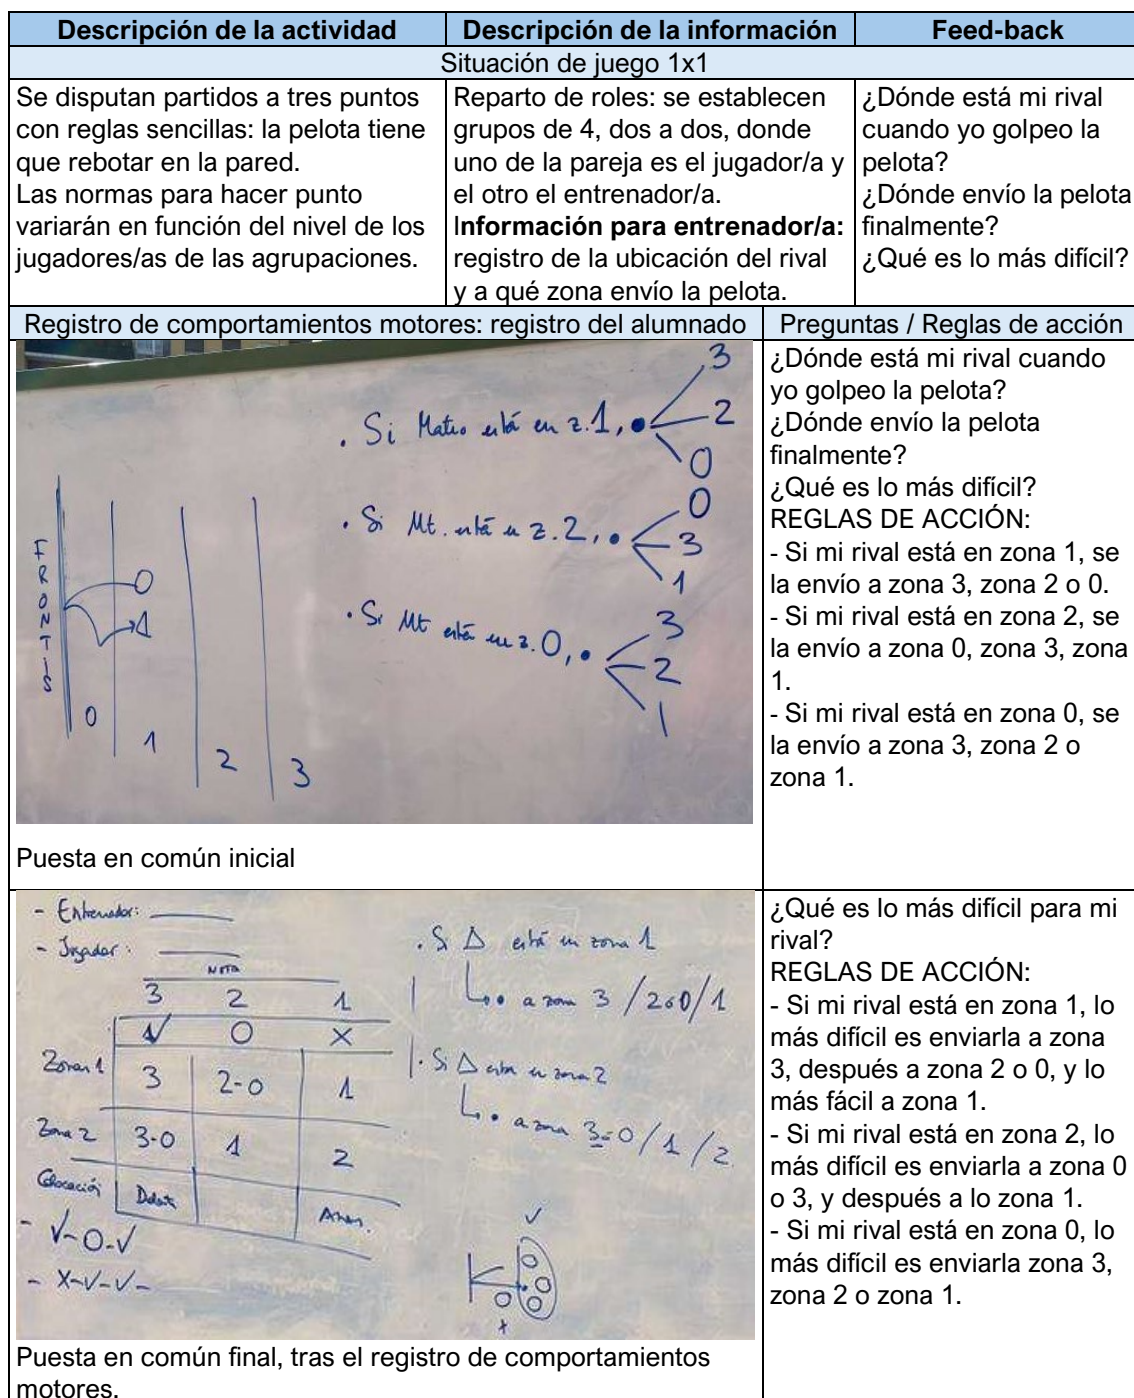 Descripción de la actividad
Descripción de la información
Feed-back
Situación de juego 1x1
Se disputan partidos a tres puntos
con reglas sencillas: la pelota tiene
que rebotar en la pared.
Las normas para hacer punto
variarán en función del nivel de los
jugadores/as de las agrupaciones.
Reparto de roles: se establecen
grupos de 4, dos a dos, donde
uno de la pareja es el jugador/a y
el otro el entrenador/a.
Información para entrenador/a:
registro de la ubicación del rival
y a qué zona envío la pelota.
¿Dónde está mi rival
cuando yo golpeo la
pelota?
¿Dónde envío la pelota
finalmente?
¿Qué es lo más difícil?
Registro de comportamientos motores: registro del alumnado
Preguntas / Reglas de acción
. Si Mateo está en z.1, 3
2
0
. Si Mt. está en z.2, 0
3
1
. Si Mt está en z.0, 3
2
1
FRONTIS
0 1 2 3
Puesta en común inicial
¿Dónde está mi rival cuando
yo golpeo la pelota?
¿Dónde envío la pelota
finalmente?
¿Qué es lo más difícil?
REGLAS DE ACCIÓN:
- Si mi rival está en zona 1, se
la envío a zona 3, zona 2 o 0.
- Si mi rival está en zona 2, se
la envío a zona 0, zona 3, zona
1.
- Si mi rival está en zona 0, se
la envío a zona 3, zona 2 o
zona 1.
- Entrenador:
- Jugador:
NOTA
3 2 1
✓ O X
Zona 1 3 2-0 1
Zona 2 3-0 1 2
Colocación
- ✓-O-✓
- X-✓-✓-
. Si Δ está en zona 1
a zona 3 / 2 o 0 / 1
. Si Δ esta en zona 2
a zona 3 o 0 / 1 / 2
✓
Puesta en común final, tras el registro de comportamientos
motores.
¿Qué es lo más difícil para mi
rival?
REGLAS DE ACCIÓN:
- Si mi rival está en zona 1, lo
más difícil es enviarla a zona
3, después a zona 2 o 0, y lo
más fácil a zona 1.
- Si mi rival está en zona 2, lo
más difícil es enviarla a zona 0
o 3, y después a lo zona 1.
- Si mi rival está en zona 0, lo
más difícil es enviarla zona 3,
zona 2 o zona 1.